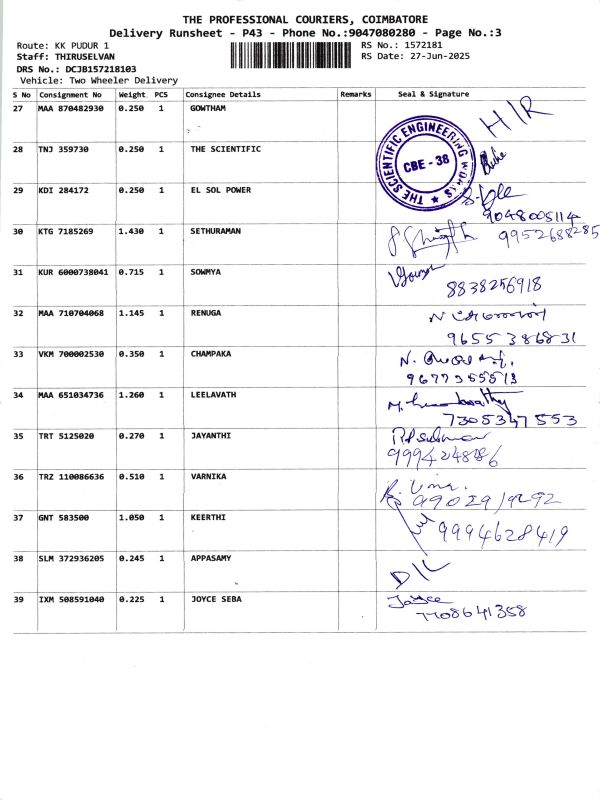 THE PROFESSIONAL COURIERS, COIMBATORE
Delivery Runsheet - P43 - Phone No.:9047080280 - Page No.:3
Route: KK PUDUR 1
RS No.: 1572181
Staff: THIRUSELVAN
RS Date: 27-Jun-2025
DRS No.: DCJB157218103
Vehicle: Two Wheeler Delivery
S No Consignment No Weight PCS Consignee Details Remarks Seal & Signature
27 MAA 870482930 0.250 1 GOWTHAM H/R
THE SCIENTIFIC ENGINEERING WORKS
CBE - 38
28 TNJ 359730 0.250 1 THE SCIENTIFIC
29 KDI 284172 0.250 1 EL SOL POWER
9048005114
30 KTG 7185269 1.430 1 SETHURAMAN
9952688285
31 KUR 6000738041 0.715 1 SOWMYA
8838256918
32 MAA 710704068 1.145 1 RENUGA
9655386831
33 VKM 700002530 0.350 1 CHAMPAKA
34 MAA 651034736 1.260 1 LEELAVATH
7305347553
35 TRT 5125020 0.270 1 JAYANTHI
36 TRZ 110086636 0.510 1 VARNIKA
37 GNT 583500 1.050 1 KEERTHI
9994628419
38 SLM 372936205 0.245 1 APPASAMY
D/L
39 IXM 508591040 0.225 1 JOYCE SEBA
Joyce
7708641358